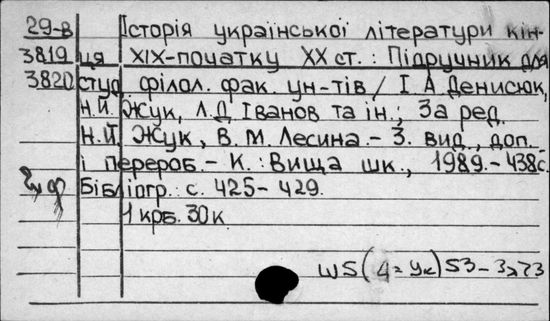 29-в Історія української літератури кін-
3819 ця XIX-початку XX ст.: Підручник для
3820 студ. філол. фак. ун-тів / І. А. Денисюк,
Н. Й. Жук, Л. Д. Іванов та ін.; За ред.
Н. Й. Жук, В. М. Лесина. - 3. вид., доп.
і перероб. - К.: Вища шк., 1989. - 438с.
Бібліогр.: с. 425-429.
1 крб. 30 к.
Ш5(4=Ук)53-3я73